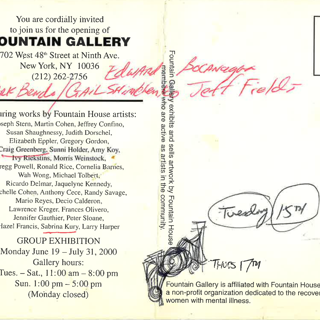 You are cordially invited
to join us for the opening of
OUNTAIN GALLERY
702 West 48th Street at Ninth Ave.
New York, NY 10036
(212) 262-2756
EDWARD BOCANEGRA
Jeff Fields
uring works by Fountain House artists:
oseph Stern, Martin Cohen, Jeffrey Confino,
Susan Shaughnessy, Judith Dorschel,
Elizabeth Eppler, Gregory Gordon,
Craig Greenberg, Sunni Holder, Amy Koy,
Ivy Rickstins, Morris Weinstock,
regg Powell, Ronald Rice, Cornelia Barries,
Wah Wong, Michael Tolbett,
Ricardo Delmar, Jaquelyne Kennedy,
chelle Cohen, Anthony Cece, Randy Savage,
Mario Reyes, Decio Calderon,
Lawrence Kreger, Frances Olivero,
Jennifer Gauthier, Peter Sloane,
Hazel Francis, Sabrina Kury, Larry Harper
GROUP EXHIBITION
Monday June 19 – July 31, 2000
Gallery hours:
Tues. – Sat., 11:00 am – 8:00 pm
Sun. 1:00 pm – 5:00 pm
(Monday closed)
Fountain Gallery exhibits and sells artwork by Fountain House
members who are active as artists in the community.
Tuesday 15TH
THURS 17TH
Fountain Gallery is affiliated with Fountain House
a non-profit organization dedicated to the recover
women with mental illness.